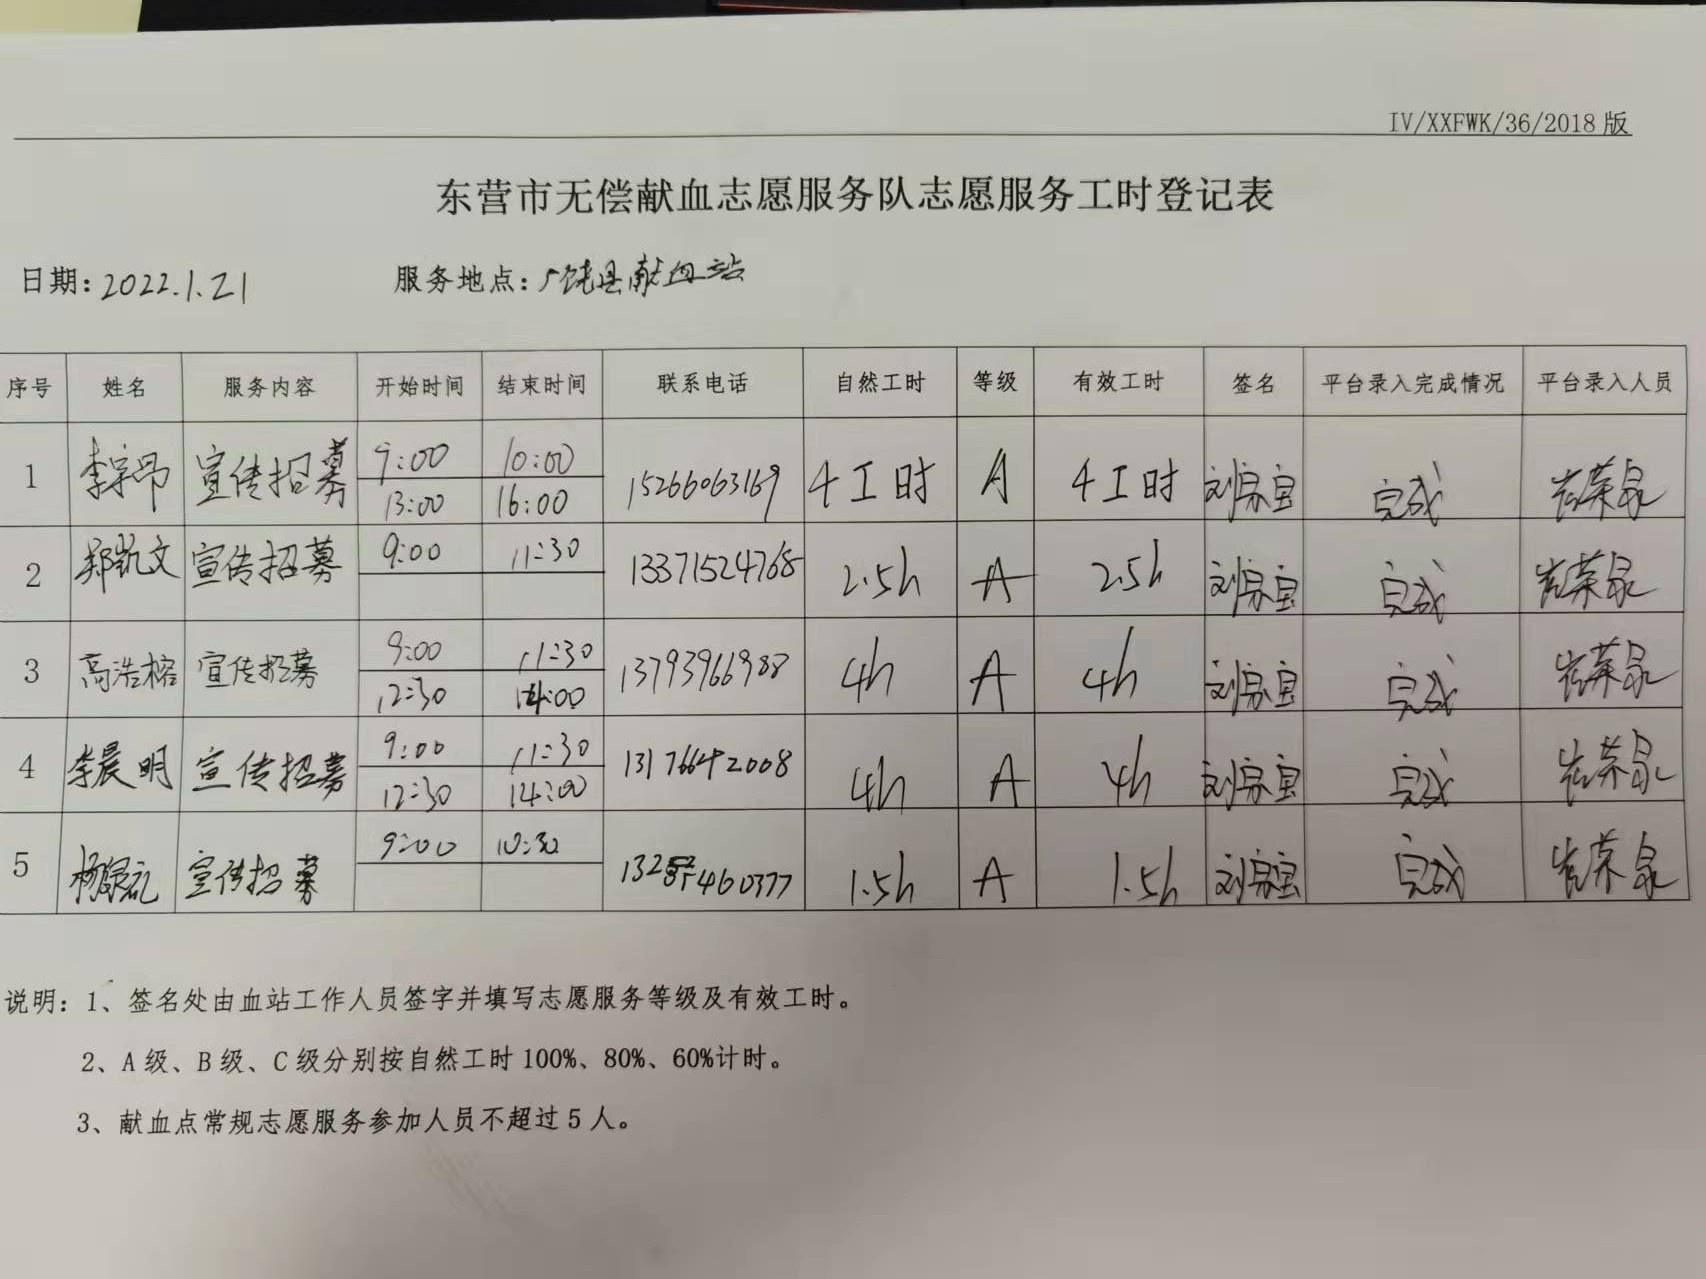 IV/XXFWK/36/2018 版
东营市无偿献血志愿服务队志愿服务工时登记表
日期: 2022.1.21 服务地点: 广饶县献血站
序号 姓名 服务内容 开始时间 结束时间 联系电话 自然工时 等级 有效工时 签名 平台录入完成情况 平台录入人员
1 宣传招募 9:00 10:00 15266063169 4工时 A 4工时 完成
13:00 16:00
2 郑凯文 宣传招募 9:00 11:30 13371524768 2.5h A 2.5h 完成
3 高浩榕 宣传招募 9:00 11:30 13793966988 4h A 4h 完成
12:30 14:00
4 李晨明 宣传招募 9:00 11:30 13176642008 4h A 4h 完成
12:30 14:00
5 宣传招募 9:00 10:30 1.5h A 1.5h 完成
说明: 1、签名处由血站工作人员签字并填写志愿服务等级及有效工时。
2、A 级、B 级、C 级分别按自然工时 100%、80%、60%计时。
3、献血点常规志愿服务参加人员不超过 5 人。